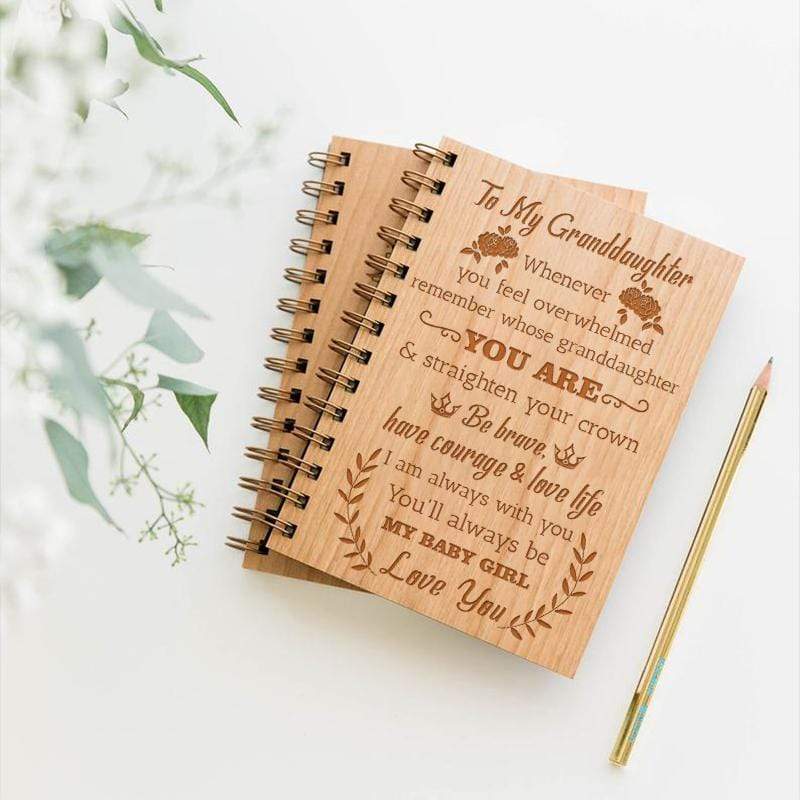 To My Granddaughter
Whenever
you feel overwhelmed
remember whose granddaughter
YOU ARE
& straighten your crown
Be brave,
have courage & love life
I am always with you
You'll always be
MY BABY GIRL
Love You